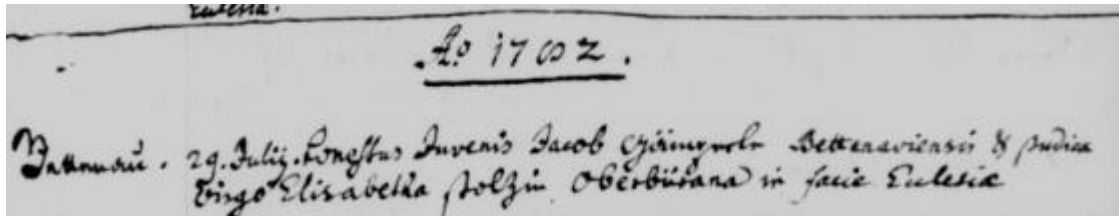 Ecclesia.
Ao 1702.
Bettenau. 29. Julij. honestus Juvenis Jacob Bettenaviensis & pudica
Virgo Elisabetha Stolzin Oberbürana in facie Ecclesiæ